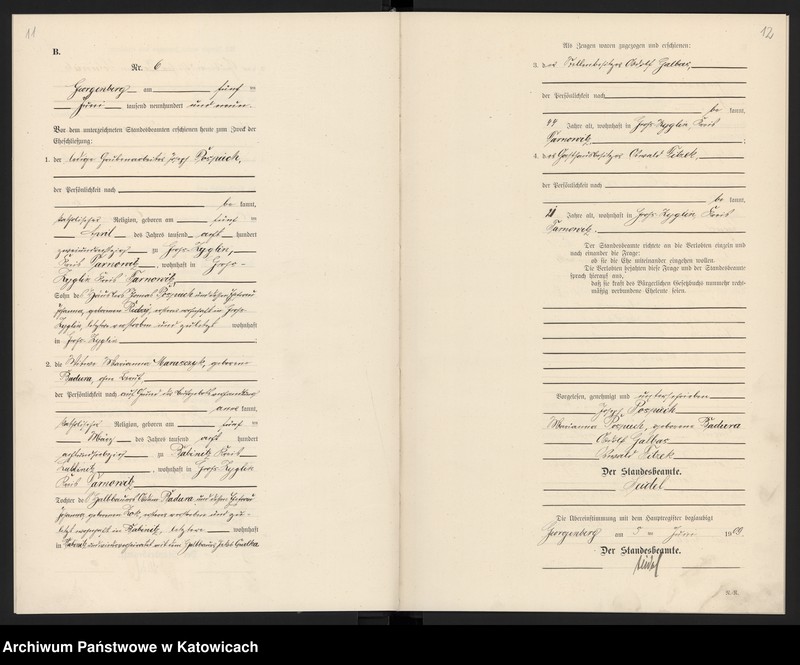 11
B.
Nr. 6
Georgenberg am fünf ten
Juni tausend neunhundert und neun.
Vor dem unterzeichneten Standesbeamten erschienen heute zum Zweck der
Eheschließung:
1. der ledige Grubenarbeiter Josef Pospiech,
der Persönlichkeit nach
be kannt,
katholischer Religion, geboren am fünf ten
April des Jahres tausend acht hundert
zweiundachtzig zu Groß-Zyglin,
Kreis Tarnowitz, wohnhaft in Groß-
Zyglin Kreis Tarnowitz,
Sohn des Häuslers Pospiech und dessen Ehefrau
geborenen
Zyglin, letztere verstorben und zuletzt wohnhaft
in Groß-Zyglin
2. die Witwe Marianna geborene
Badura, ohne Beruf,
der Persönlichkeit nach auf Grund des
aner kannt,
katholischer Religion, geboren am fünf ten
März des Jahres tausend acht hundert
achtundsiebzig zu Babinitz Kreis
Lublinitz, wohnhaft in Groß-Zyglin
Kreis Tarnowitz
Tochter des Halbbauers Badura und dessen Ehefrau
geborenen ersterer verstorben und zu-
letzt wohnhaft in Babinitz, letztere wohnhaft
in Babinitz und wiederverheiratet mit dem Halbbauer Jakob
12
Als Zeugen waren zugezogen und erschienen:
3. der Stellenbesitzer Adolf Galbas,
der Persönlichkeit nach
be kannt,
44 Jahre alt, wohnhaft in Groß-Zyglin Kreis
Tarnowitz;
4. der Gasthausbesitzer Oswald
der Persönlichkeit nach
be kannt,
Jahre alt, wohnhaft in Groß-Zyglin Kreis
Tarnowitz.
Der Standesbeamte richtete an die Verlobten einzeln und
nach einander die Frage:
ob sie die Ehe miteinander eingehen wollen.
Die Verlobten bejahten diese Frage und der Standesbeamte
sprach hierauf aus,
daß sie kraft des Bürgerlichen Gesetzbuchs nunmehr recht-
mäßig verbundene Eheleute seien.
Vorgelesen, genehmigt und unterschrieben
Josef Pospiech
Marianna Pospiech, geborene Badura
Adolf Galbas
Oswald
Der Standesbeamte.
Seidel
Die Übereinstimmung mit dem Hauptregister beglaubigt
Georgenberg am 5 ten Juni 1909.
Der Standesbeamte.
Seidel
Archiwum Państwowe w Katowicach